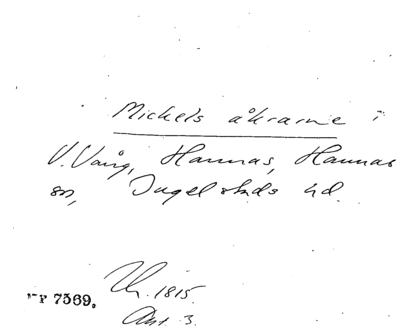 Mickels åkrarne i
V. Vång, Hannas, Hannas
sn, Ingelstads hd.
1815.
7569.
3.